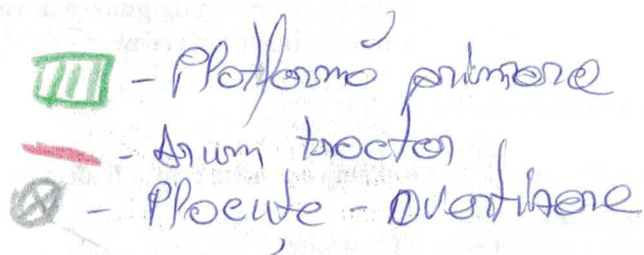 - Platformă primare
- Drum tractor
- Placute - Avertizare